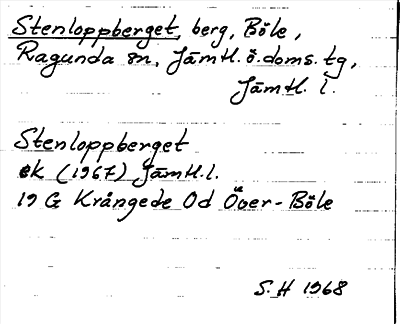 Stenloppberget, berg, Böle,
Ragunda sn, Jämtl. ö. doms. tg,
Jämtl. l.
Stenloppberget
ek (1967) Jämtl. l.
19 G Krångede Od Över-Böle
S. H 1968